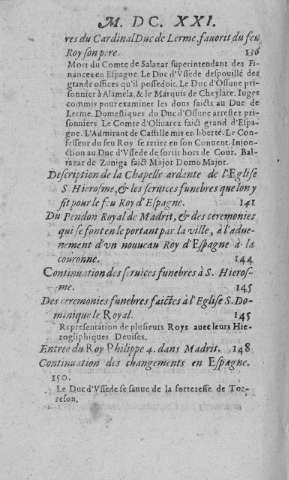 M. DC. XXI.
res du Cardinal Duc de Lerme, fauorit du feu
Roy son pere. 136
Mort du Comte de Salazar superintendant des Fi-
nances en Espagne. Le Duc d'Vssede despouillé des
grands offices qu'il possedoit. Le Duc d'Ossune pri-
sonnier à Alameda, & le Marquis de Cheylare. Iuges
commis pour examiner les dons faicts au Duc de
Lerme. Domestiques du Duc d'Ossune arrestez pri-
sonniers. Le Comte d'Oliuarez faict grand d'Espa-
gne. L'Admirant de Castille mis en liberté. Le Con-
fesseur du feu Roy se retire en son Conuent. Injon-
ction au Duc d'Vssede de sortir hors de Cour. Bal-
tazar de Zuniga faict Major Domo Major.
Description de la Chapelle ardante de l'Eglise
S. Hierosme, & les seruices funebres que lon y
fit pour le feu Roy d'Espagne. 141
Du Pendon Royal de Madrit, & des ceremonies
qui se font en le portant par la ville, à l'adue-
nement d'vn nouueau Roy d'Espagne à la
couronne. 144
Continuation des seruices funebres à S. Hieros-
me. 145
Des ceremonies funebres faictes à l'Eglise S. Do-
minique le Royal. 145
Representation de plusieurs Roys auec leurs Hie-
rogliphiques Deuises.
Entree du Roy Philippe 4. dans Madrit. 148
Continuation des changements en Espagne.
150.
Le Duc d'Vssede se sauue de la forteresse de Tor-
reson.